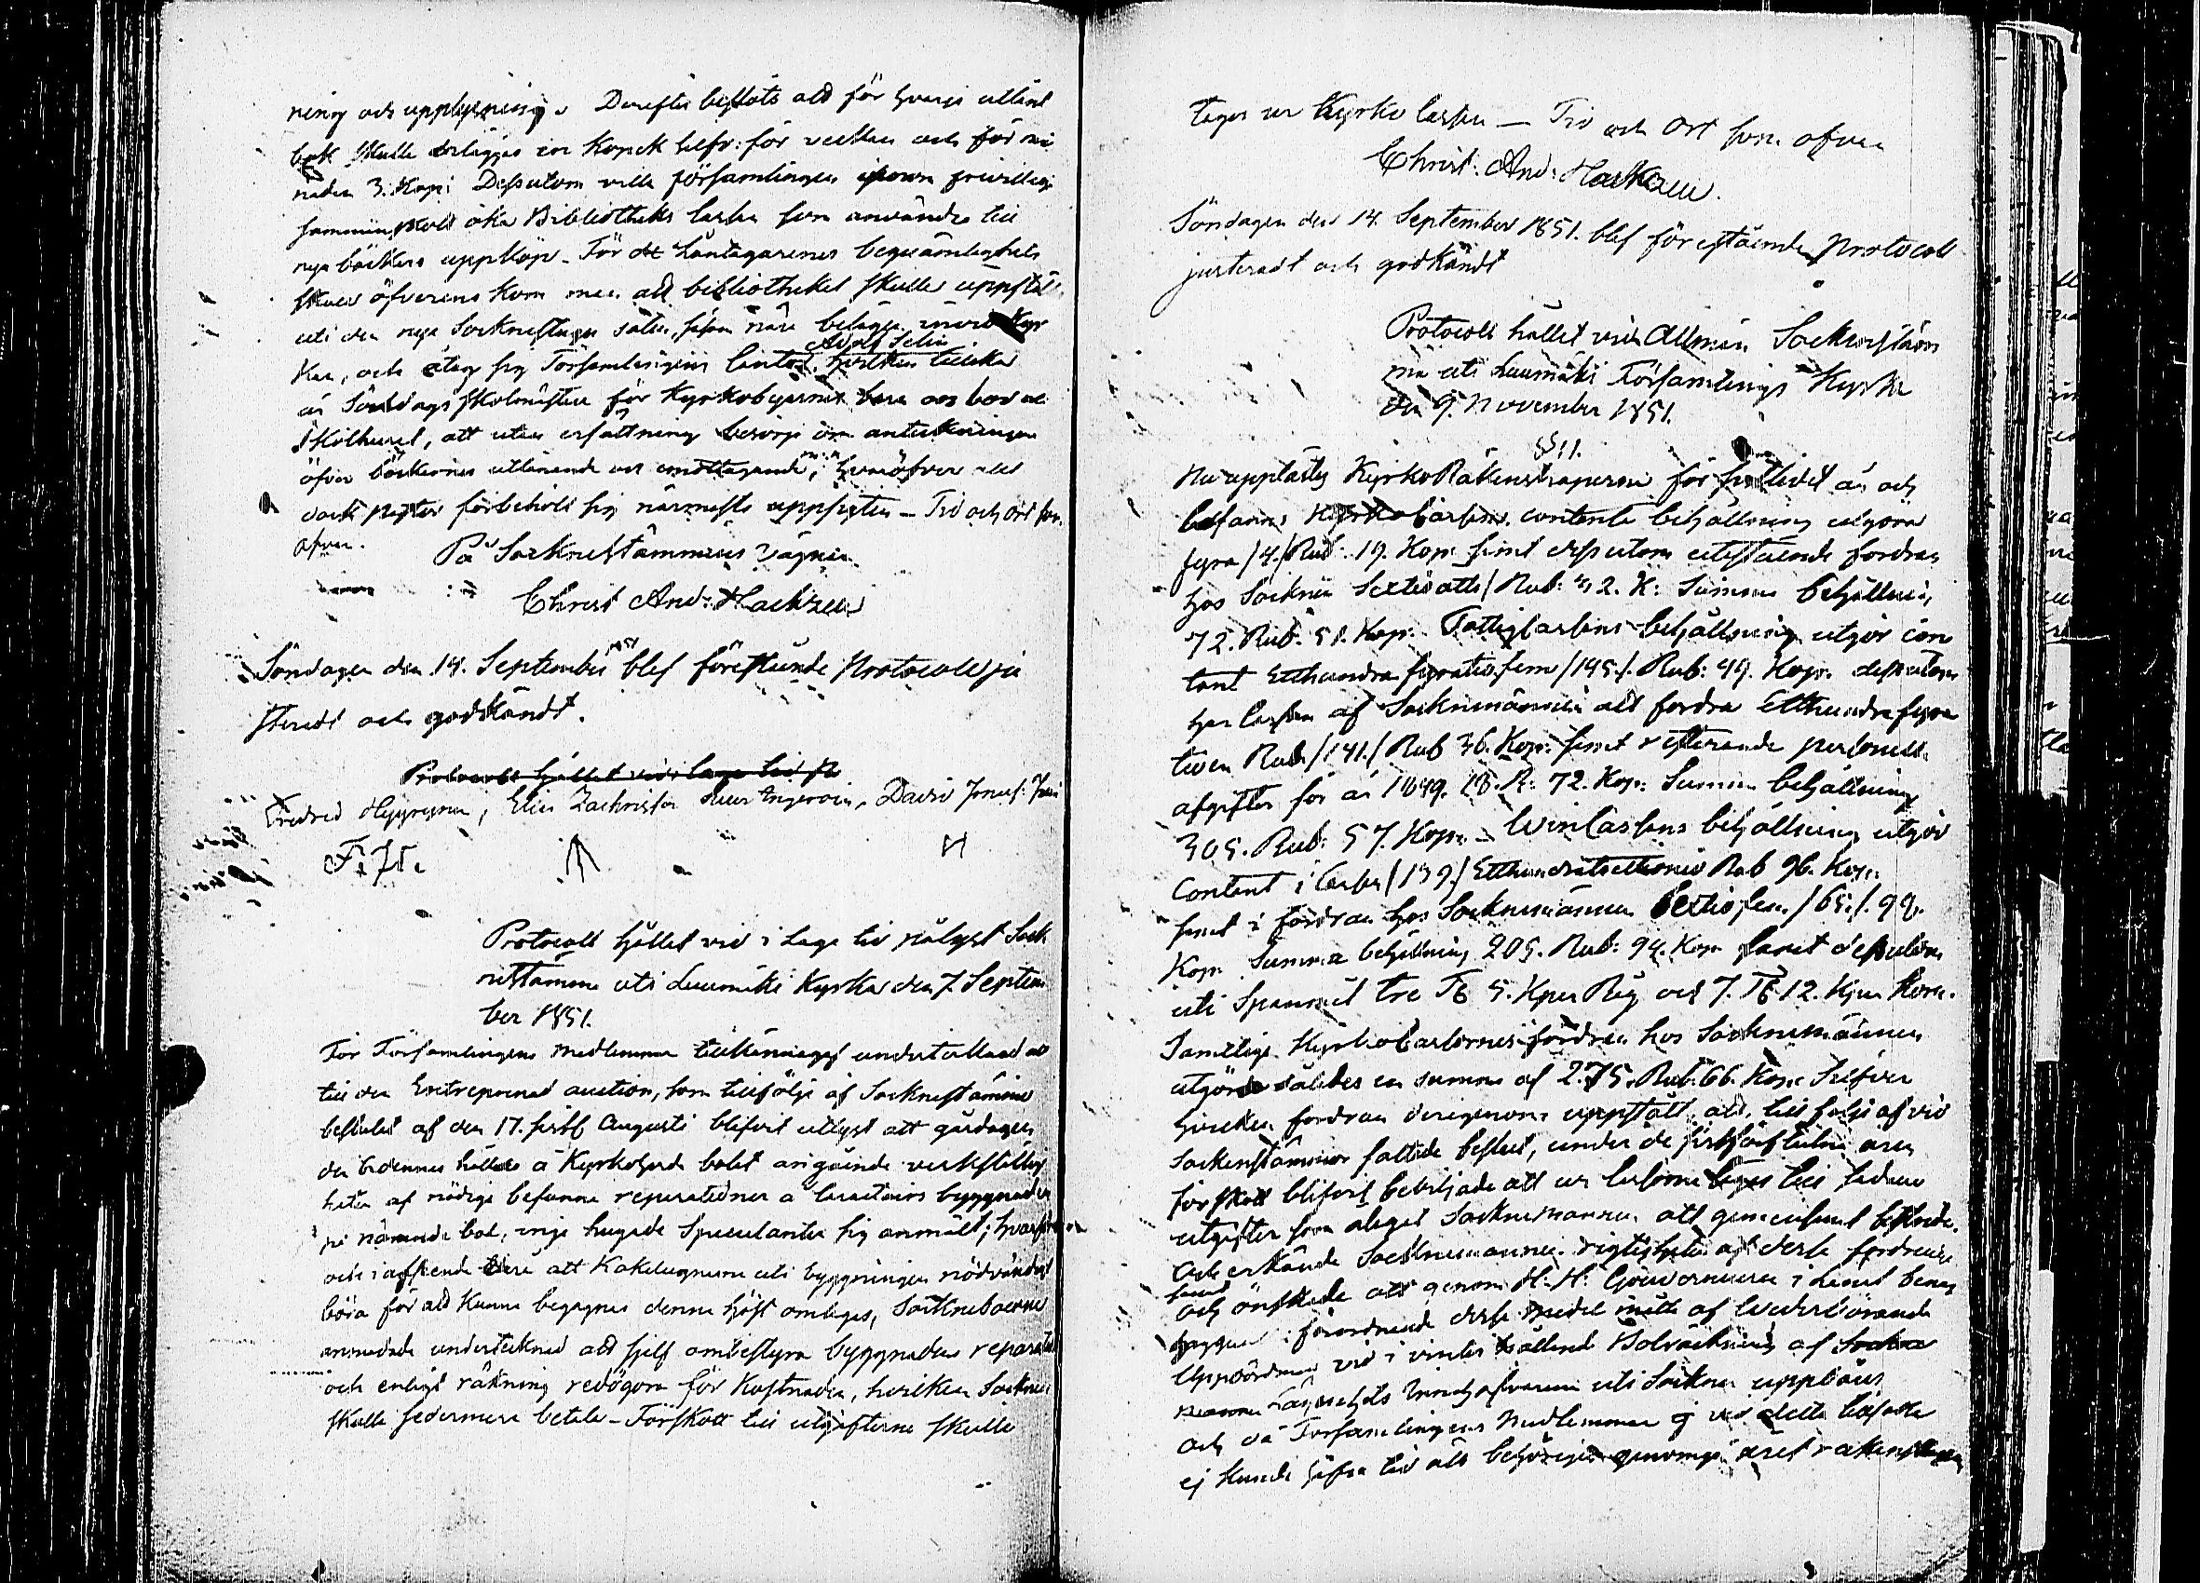 ning och upplysning. Derefter beslöts att för hvarje utlånt
bok skulle erläggas en Kopek silfv: för veckan och för må
naden 3. Kop: Dessutom ville församlingen genom frivilliga
sammanskott öka Bibliotheks cassan som användes till
nya böckers uppköp. För Låntagarenes beqvämlighets
skull öfverens kom man att bibliotheket skulle uppställas
uti den nya Sockenstugu salen, såsom nära belägen invid Kyr
kan, och åtog sig Församlingens Cantor Adolf Selin hvilken tillika
är Söndags skolmästare för Kyrkobyarnes barn och bor
Skolhuset, att utan ersättning besörja om anteckningen
öfver böckernes utlånande och emottagande, hvaröfver
dock pastor förbehöll sig närmaste uppsigten – Tid och ort som
ofvan.
På Sockenestämmans vägnar
Christ And: Hackzell
Söndagen den 14. September 1851 blef förestående Protocoll ju
steradt och godkändt.
Protocoll hållet vid laga tid
Fredred Hyyrynen, Elias Zachrisson Ingeroin, David Jonas:
Protocoll hållet vid i laga tid pålyst Sock
nestämma uti Luumäki Kyrka den 7. Septem
ber 1851.
För Församlingens medlemmar tillkännagaf undertecknad att
till den Entreprenad auction, som till följe af Sockenestämmo
beslutet af den 17. sistl. Augusti blifvit utlyst att gårdagen
der hållas å Kyrkoherde bolet angående verkställig
heten af nödige befunna reparationer å byggnaden
på nämnde bol, inga hugade Speculanter sig anmält; hvarföre
och i afseende dera att Kakelugnarne uti byggningen nödvändigt
böra för att kunna begagnas denna höst omlagas, Sockneboerne
anmodade undertecknad att sjelf ombestyra byggnadens reparation
och enligt räkning redogöra för Kostnaden, hvilken Socknen
skulle sedermera betala – Förskott till utgifterne skulle
tagas ur Kyrko cassan – Tid och Ort som ofvan
Christ: And: Hackzell.
Söndagen den 14. September 1851. blef förestående Protocoll
justeradt och godkändt
Protocoll hållet vid Allmän Sockenstäm
ma uti Luumäki Församlings Kyrka
den 9. November 1851.
§ 1.
Nu upplästes Kyrko Räkenskaperna för sistledet år och
befanns Kyrko Cassans contenta behållning utgöra
fyra /4./ Rub: 19. Kop: samt dessutom utestående fordran
hos Socknen Sextioåtta / Rub: 32. K: Summa behållning
72. Rub: 51. Kop: Fattigcassans behållning utgör con
tant Etthundra fyratiofem /145./ Rub: 49. Kop: dessutom
har cassan af Socknemännen att fordra Etthundra fyra
tioen Rub. /141./ Rub 36. Kop: samt resterande personell
afgifter för år 1849. 18. R: 72. Kop: Summa behållning
305. Rub: 57. Kop: – Vin Cassans behållning utgör
Contant i Cassa /139./ Etthundratrettionio Rub 96. Kop:
samt i fordran hos Socknemännen Sextiofem /65./ 98.
Kop Summa behållning 205. Rub: 94. Kop samt dessutom
uti Spannmål tre T:r 5. Kpr Råg och 7. T:r 12. Kpr Korn.
Samtlige Kyrko Cassornes fordran hos Socknemännen
utgör således en summa af 275. Rub: 66. Kop: Silfver
hvilken fordran derigenom uppstått, att, till följe af vid
Sockenstämmor fattade beslut, under de sistförflutna åren
förskott blifvit beviljade att ur cassorne tagas till sådane
utgifter som ålegat Socknemännen att gemensamt bestrida.
Och erkände Socknemännen rigtigheten af dessa fordringar
samt och önskade att genom H: H: Gouverneuren i Länet benäg
förordnande dessa medel måtte af Vederbörande
Uppbördsman vid i vinter hållande Uolräkning af Socknen
Lägenhets Innehafvarne uti Socknen uppbäras
och då Församlingens Medlemmar ej vid detta tillfälle
ej kunde hafva tid att behörigen genomgå året räkenskaper